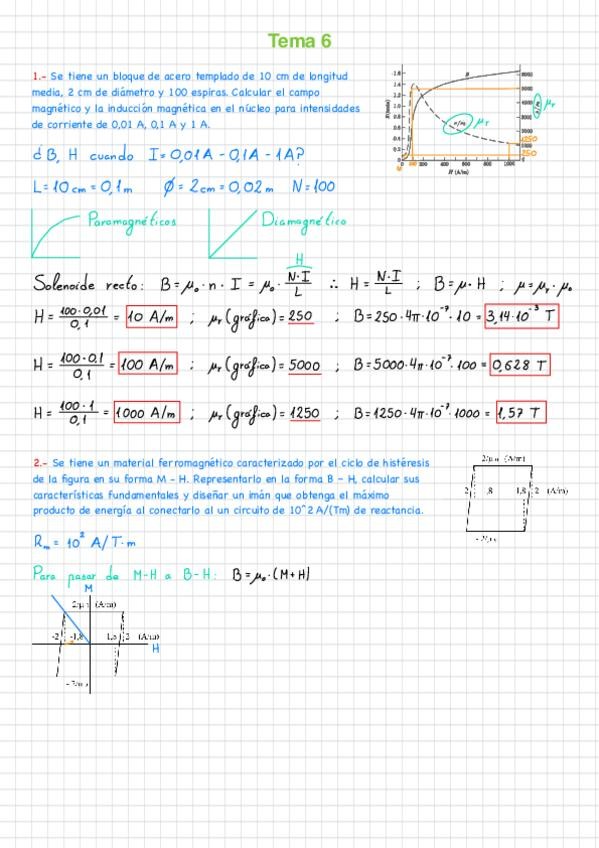 Tema 6
1.- Se tiene un bloque de acero templado de 10 cm de longitud
media, 2 cm de diámetro y 100 espiras. Calcular el campo
magnético y la inducción magnética en el núcleo para intensidades
de corriente de 0,01 A, 0,1 A y 1 A.
¿B, H cuando I = 0,01A - 0,1A - 1A?
L = 10 cm = 0,1 m Ø = 2 cm = 0,02 m N = 100
1250
250
H (A/m)
μr
μr
Paramagnéticos
Diamagnético
Solenoide recto: B = μ₀ · n · I = μ₀ · N·I/L ∴ H = N·I/L ; B = μ·H ; μ = μr · μ₀
H
H = 100·0,01/0,1 = 10 A/m ; μr (gráfica) = 250 ; B = 250·4π·10⁻⁷·10 = 3,14·10⁻³ T
H = 100·0,1/0,1 = 100 A/m ; μr (gráfica) = 5000 ; B = 5000·4π·10⁻⁷·100 = 0,628 T
H = 100·1/0,1 = 1000 A/m ; μr (gráfica) = 1250 ; B = 1250·4π·10⁻⁷·1000 = 1,57 T
2.- Se tiene un material ferromagnético caracterizado por el ciclo de histéresis
de la figura en su forma M - H. Representarlo en la forma B – H, calcular sus
características fundamentales y diseñar un imán que obtenga el máximo
producto de energía al conectarlo al un circuito de 10^2 A/(Tm) de reactancia.
(A/m)
2 ,8 1,8 2 (A/m)
Rm = 10² A/T·m
Para pasar de M-H a B-H: B = μ₀·(M+H)
M
(A/m)
-2 -1,8 2 (A/m)
H